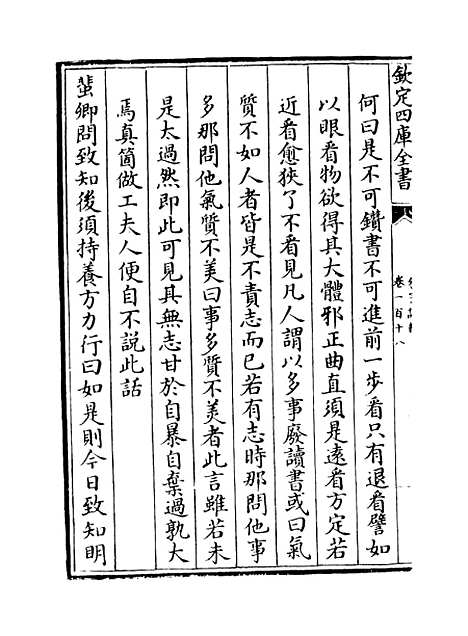 欽定四庫全書
卷一百十八
何曰是不可鑽書不可進前一步看只有退看譬如
以眼看物欲得其大體邪正曲直須是遠看方定若
近看愈狹了不看見凡人謂以多事廢讀書或曰氣
質不如人者皆是不責志而已若有志時那問他事
多那問他氣質不美曰事多質不美者此言雖若未
是太過然即此可見其無志甘於自暴自棄過孰大
焉真箇做工夫人便自不說此話
蜚卿問致知後須持養方力行曰如是則今日致知明